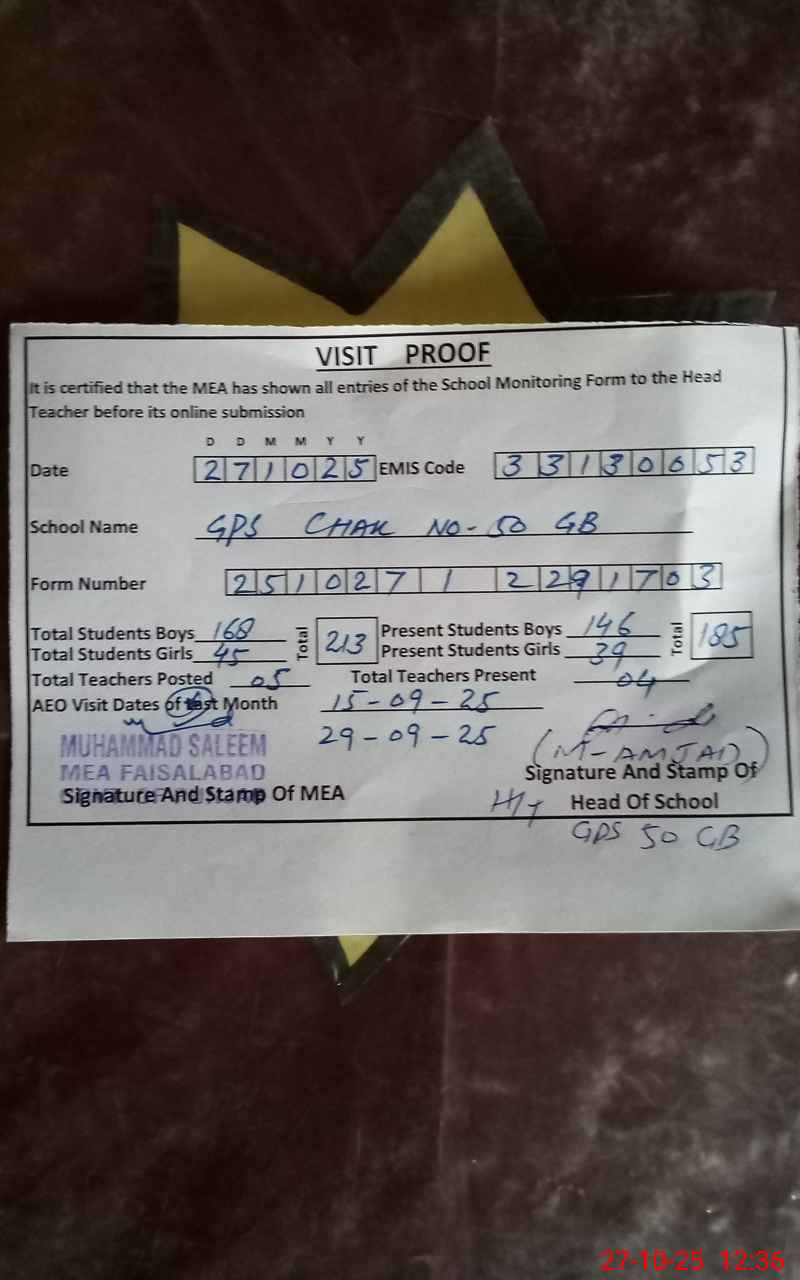 VISIT PROOF
It is certified that the MEA has shown all entries of the School Monitoring Form to the Head
Teacher before its online submission
D D M M Y Y
Date 2 7 1 0 2 5 EMIS Code 3 3 1 3 0 0 5 3
School Name GPS CHAK NO-50 GB
Form Number 2 5 1 0 2 7 1 2 2 9 1 7 0 3
Total Students Boys 168 Total 213 Present Students Boys 146 Total 185
Total Students Girls 45 Present Students Girls 39
Total Teachers Posted 05 Total Teachers Present 04
AEO Visit Dates of last Month 15-09-25
29-09-25
MUHAMMAD SALEEM
MEA FAISALABAD
(M-AMJAD)
Signature And Stamp Of MEA
Signature And Stamp Of
H/T Head Of School
GPS 50 GB
27-10-25 12:36